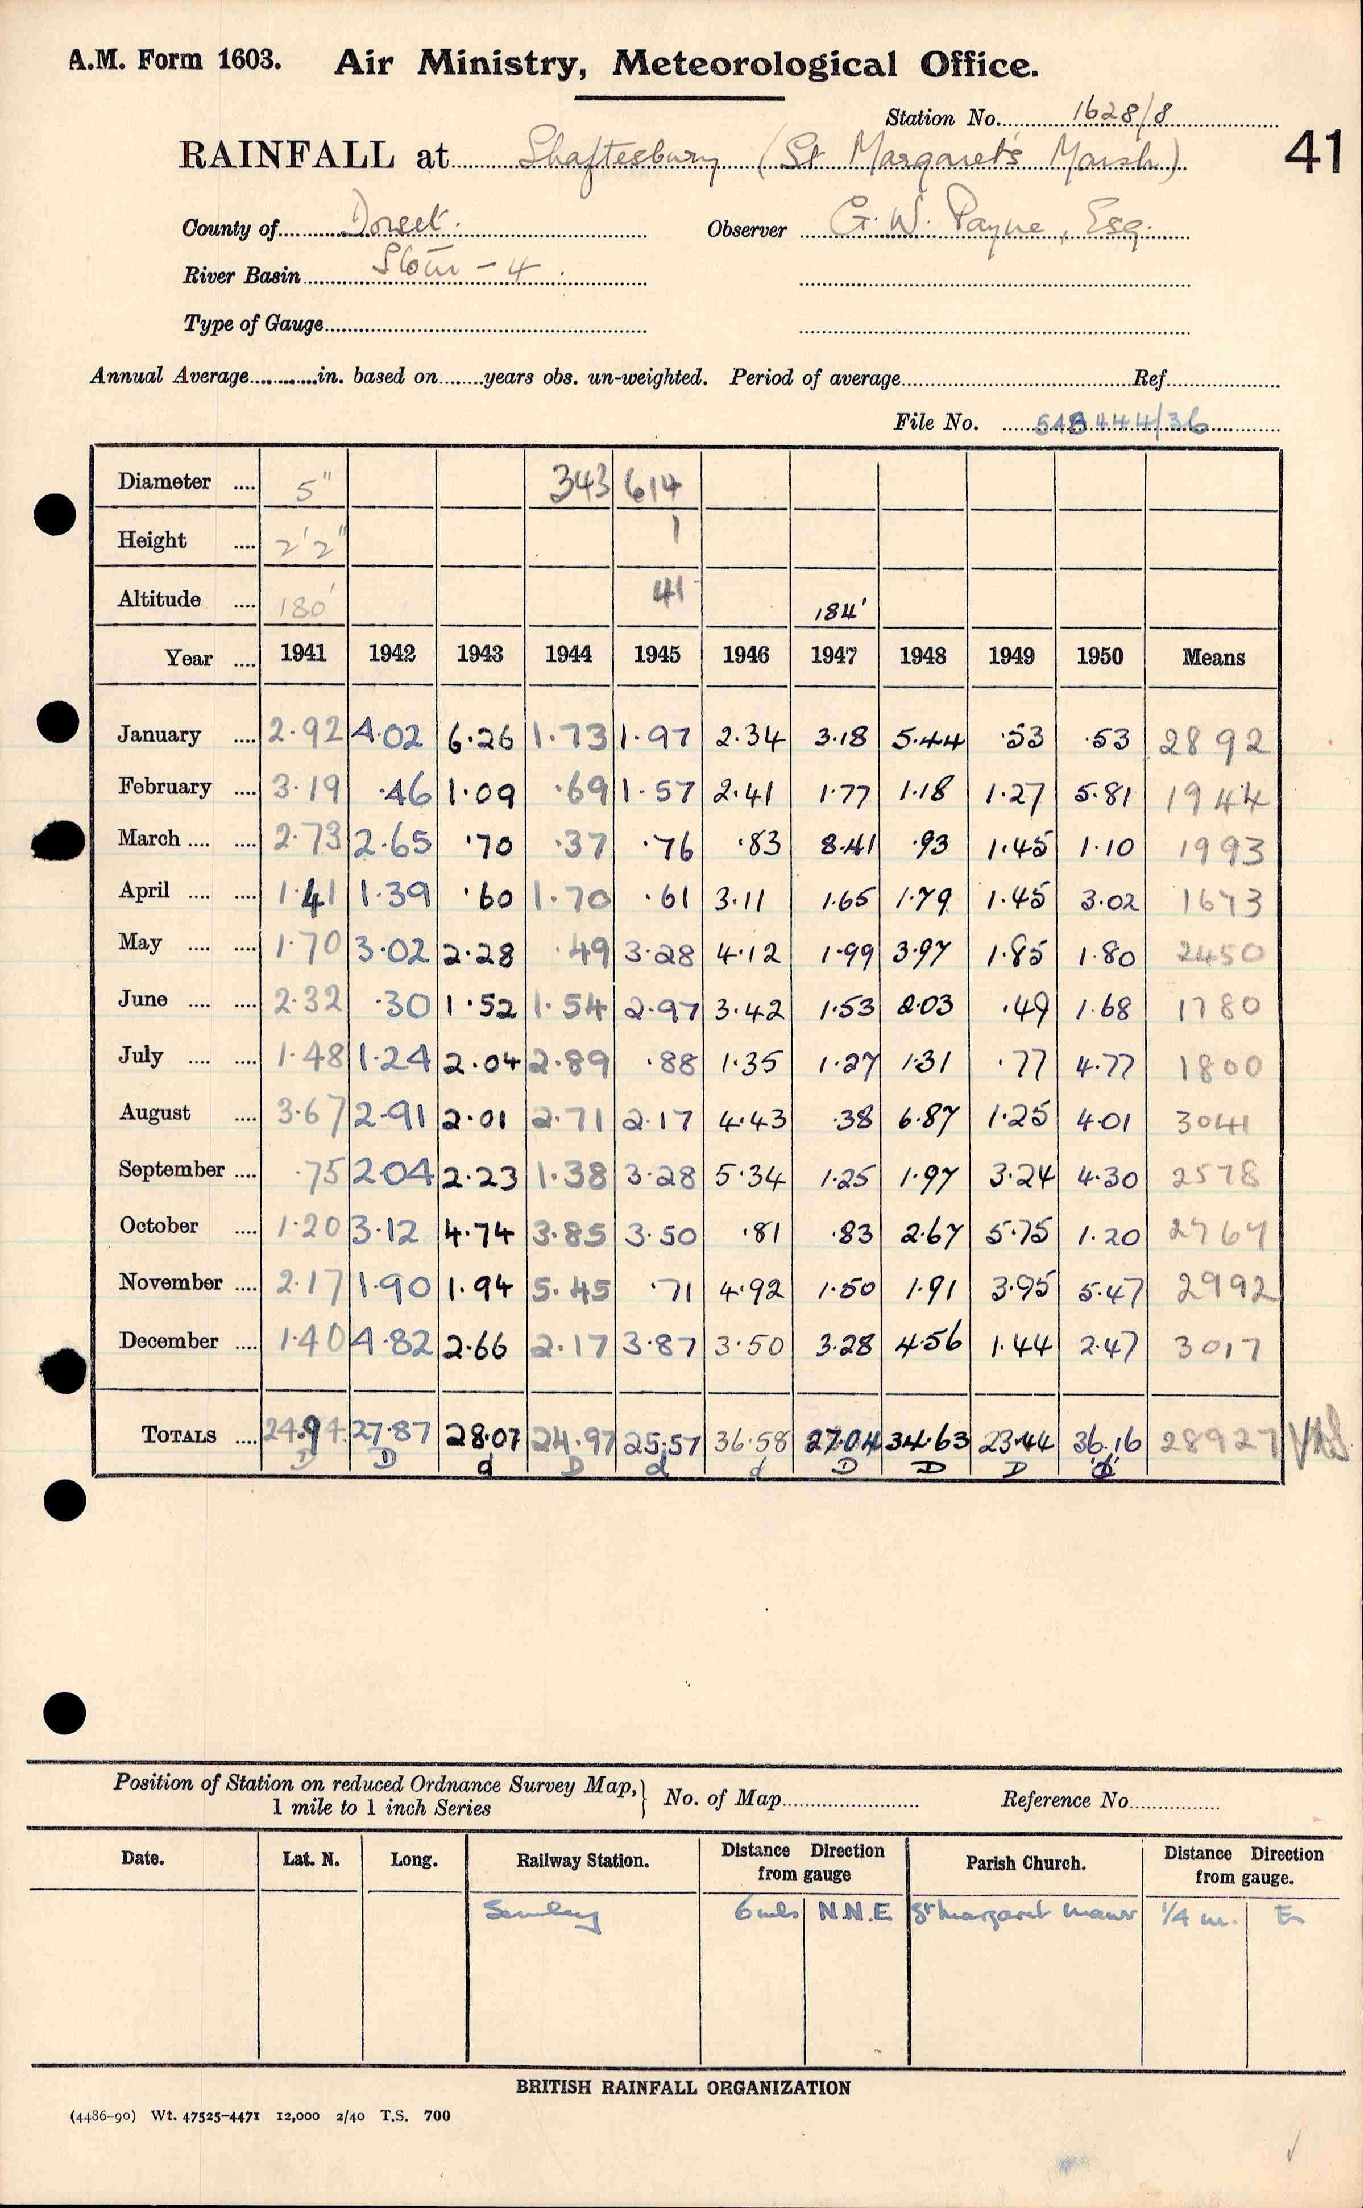 A.M. Form 1603. Air Ministry, Meteorological Office.
Station No. 1628/8
RAINFALL at Shaftesbury (St Margaret's Marsh) 41
County of Dorset. Observer G. W. Payne, Esq.
River Basin Stour - 4
Type of Gauge
Annual Average in. based on years obs. un-weighted. Period of average Ref
File No. 548444/36
Diameter .... 5" 343 614
Height .... 2' 2" 1
Altitude .... 180' 41 184'
Year .... 1941 1942 1943 1944 1945 1946 1947 1948 1949 1950 Means
January .... 2.92 4.02 6.26 1.73 1.97 2.34 3.18 5.44 .53 .53 2892
February .... 3.19 .46 1.09 .69 1.57 2.41 1.77 1.18 1.27 5.81 1944
March .... .... 2.73 2.65 .70 .37 .76 .83 8.41 .93 1.45 1.10 1993
April .... .... 1.41 1.39 .60 1.70 .61 3.11 1.65 1.79 1.45 3.02 1673
May .... .... 1.70 3.02 2.28 .49 3.28 4.12 1.99 3.97 1.85 1.80 2450
June .... .... 2.32 .30 1.52 1.54 2.97 3.42 1.53 2.03 .49 1.68 1780
July .... .... 1.48 1.24 2.04 2.89 .88 1.35 1.27 1.31 .77 4.77 1800
August .... 3.67 2.91 2.01 2.71 2.17 4.43 .38 6.87 1.25 4.01 3041
September .... .75 2.04 2.23 1.38 3.28 5.34 1.25 1.97 3.24 4.30 2578
October .... 1.20 3.12 4.74 3.85 3.50 .81 .83 2.67 5.75 1.20 2767
November .... 2.17 1.90 1.94 5.45 .71 4.92 1.50 1.91 3.95 5.47 2992
December .... 1.40 4.82 2.66 2.17 3.87 3.50 3.28 4.56 1.44 2.47 3017
TOTALS .... 24.94 27.87 28.07 24.97 25.57 36.58 27.04 34.63 23.44 36.16 28927
D D d D d d D D D d
Position of Station on reduced Ordnance Survey Map, No. of Map Reference No.
1 mile to 1 inch Series
Date. Lat. N. Long. Railway Station. Distance Direction from gauge Parish Church. Distance Direction from gauge.
Semley 6 mls N.N.E St Margaret Marsh 1/4 m. E
BRITISH RAINFALL ORGANIZATION
(4486-90) Wt. 47525-4471 12,000 2/40 T.S. 700